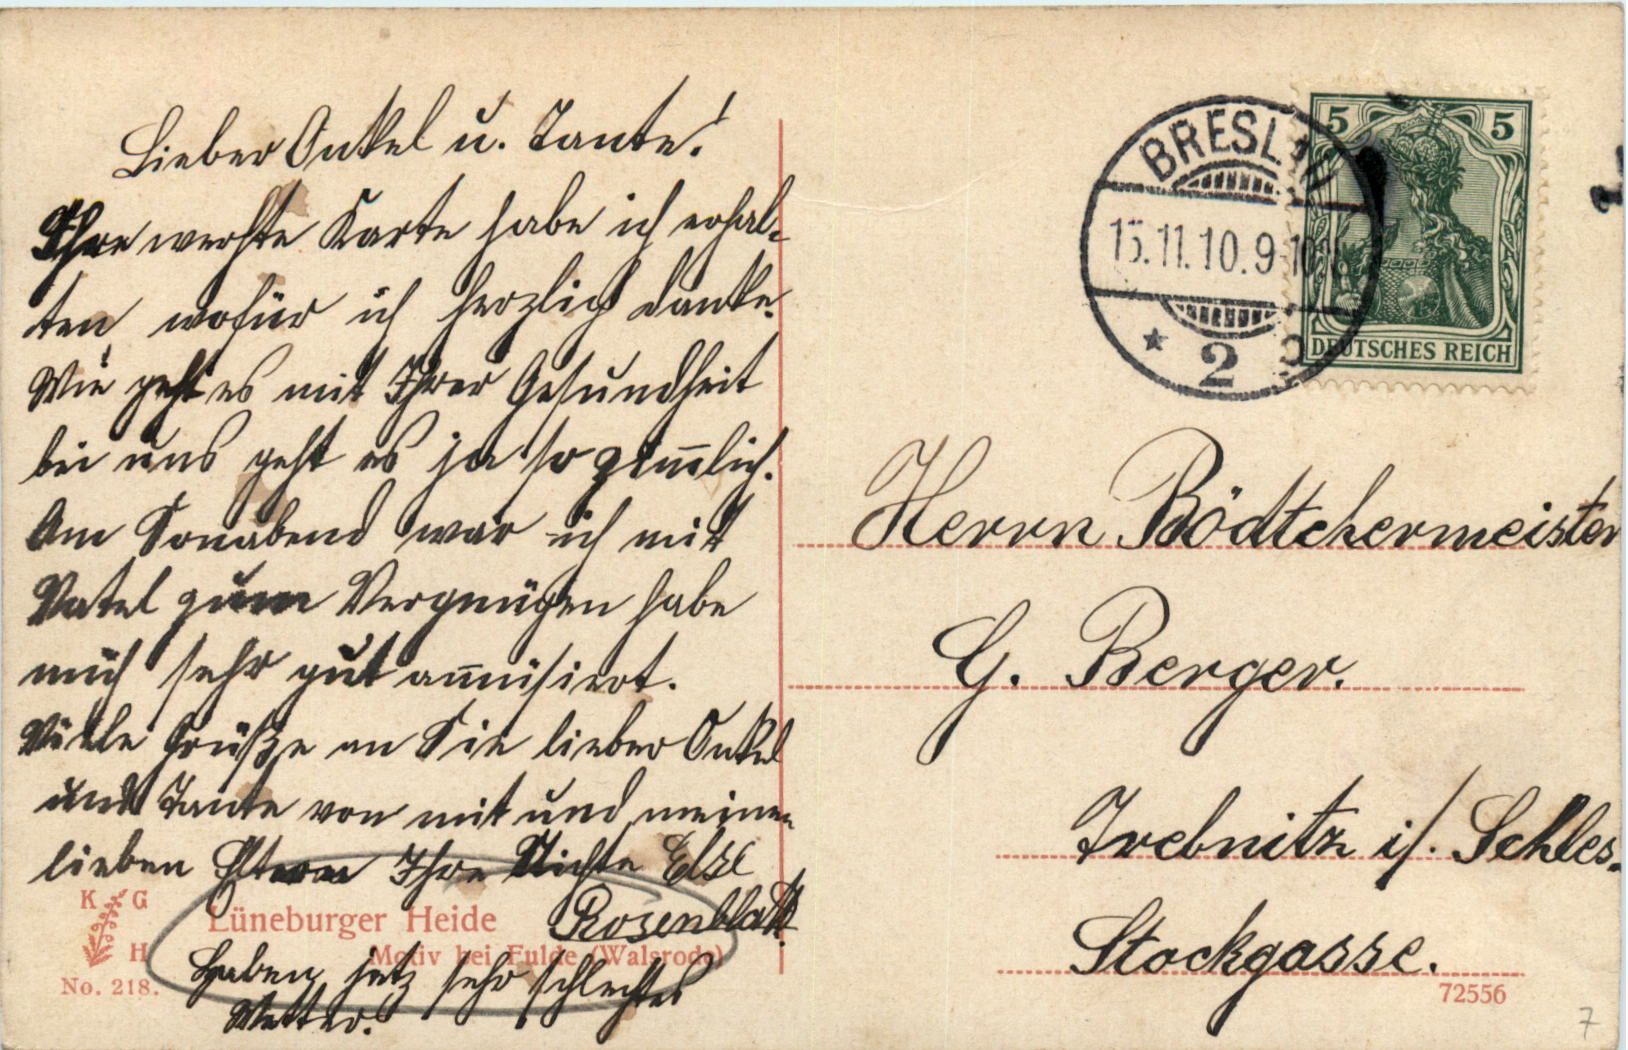 Lieber Onkel u. Tante!
Ihre werthe Karte habe ich erhal-
ten, wofür ich herzlich danke.
Wie geht es mit Ihrer Gesundheit
bei uns geht es ja so ziemlich.
Am Sonnabend war ich mit
Vatel zum Vergnügen habe
mich sehr gut amüsirt.
Viele Grüße an Sie lieber Onkel
und Tante von mir und meinen
lieben Eltern Ihre Nichte Else
Rosenblatt.
Haben jetz sehr schlechtes
Wetter.
K G
H
No. 218.
Lüneburger Heide
Motiv bei Fulde (Walsrode)
BRESLAU
15.11.10.9-10
* 2
5 5
DEUTSCHES REICH
Herrn Bödtchermeister
G. Berger.
Trebnitz i/. Schles.
Stockgasse.
72556
7